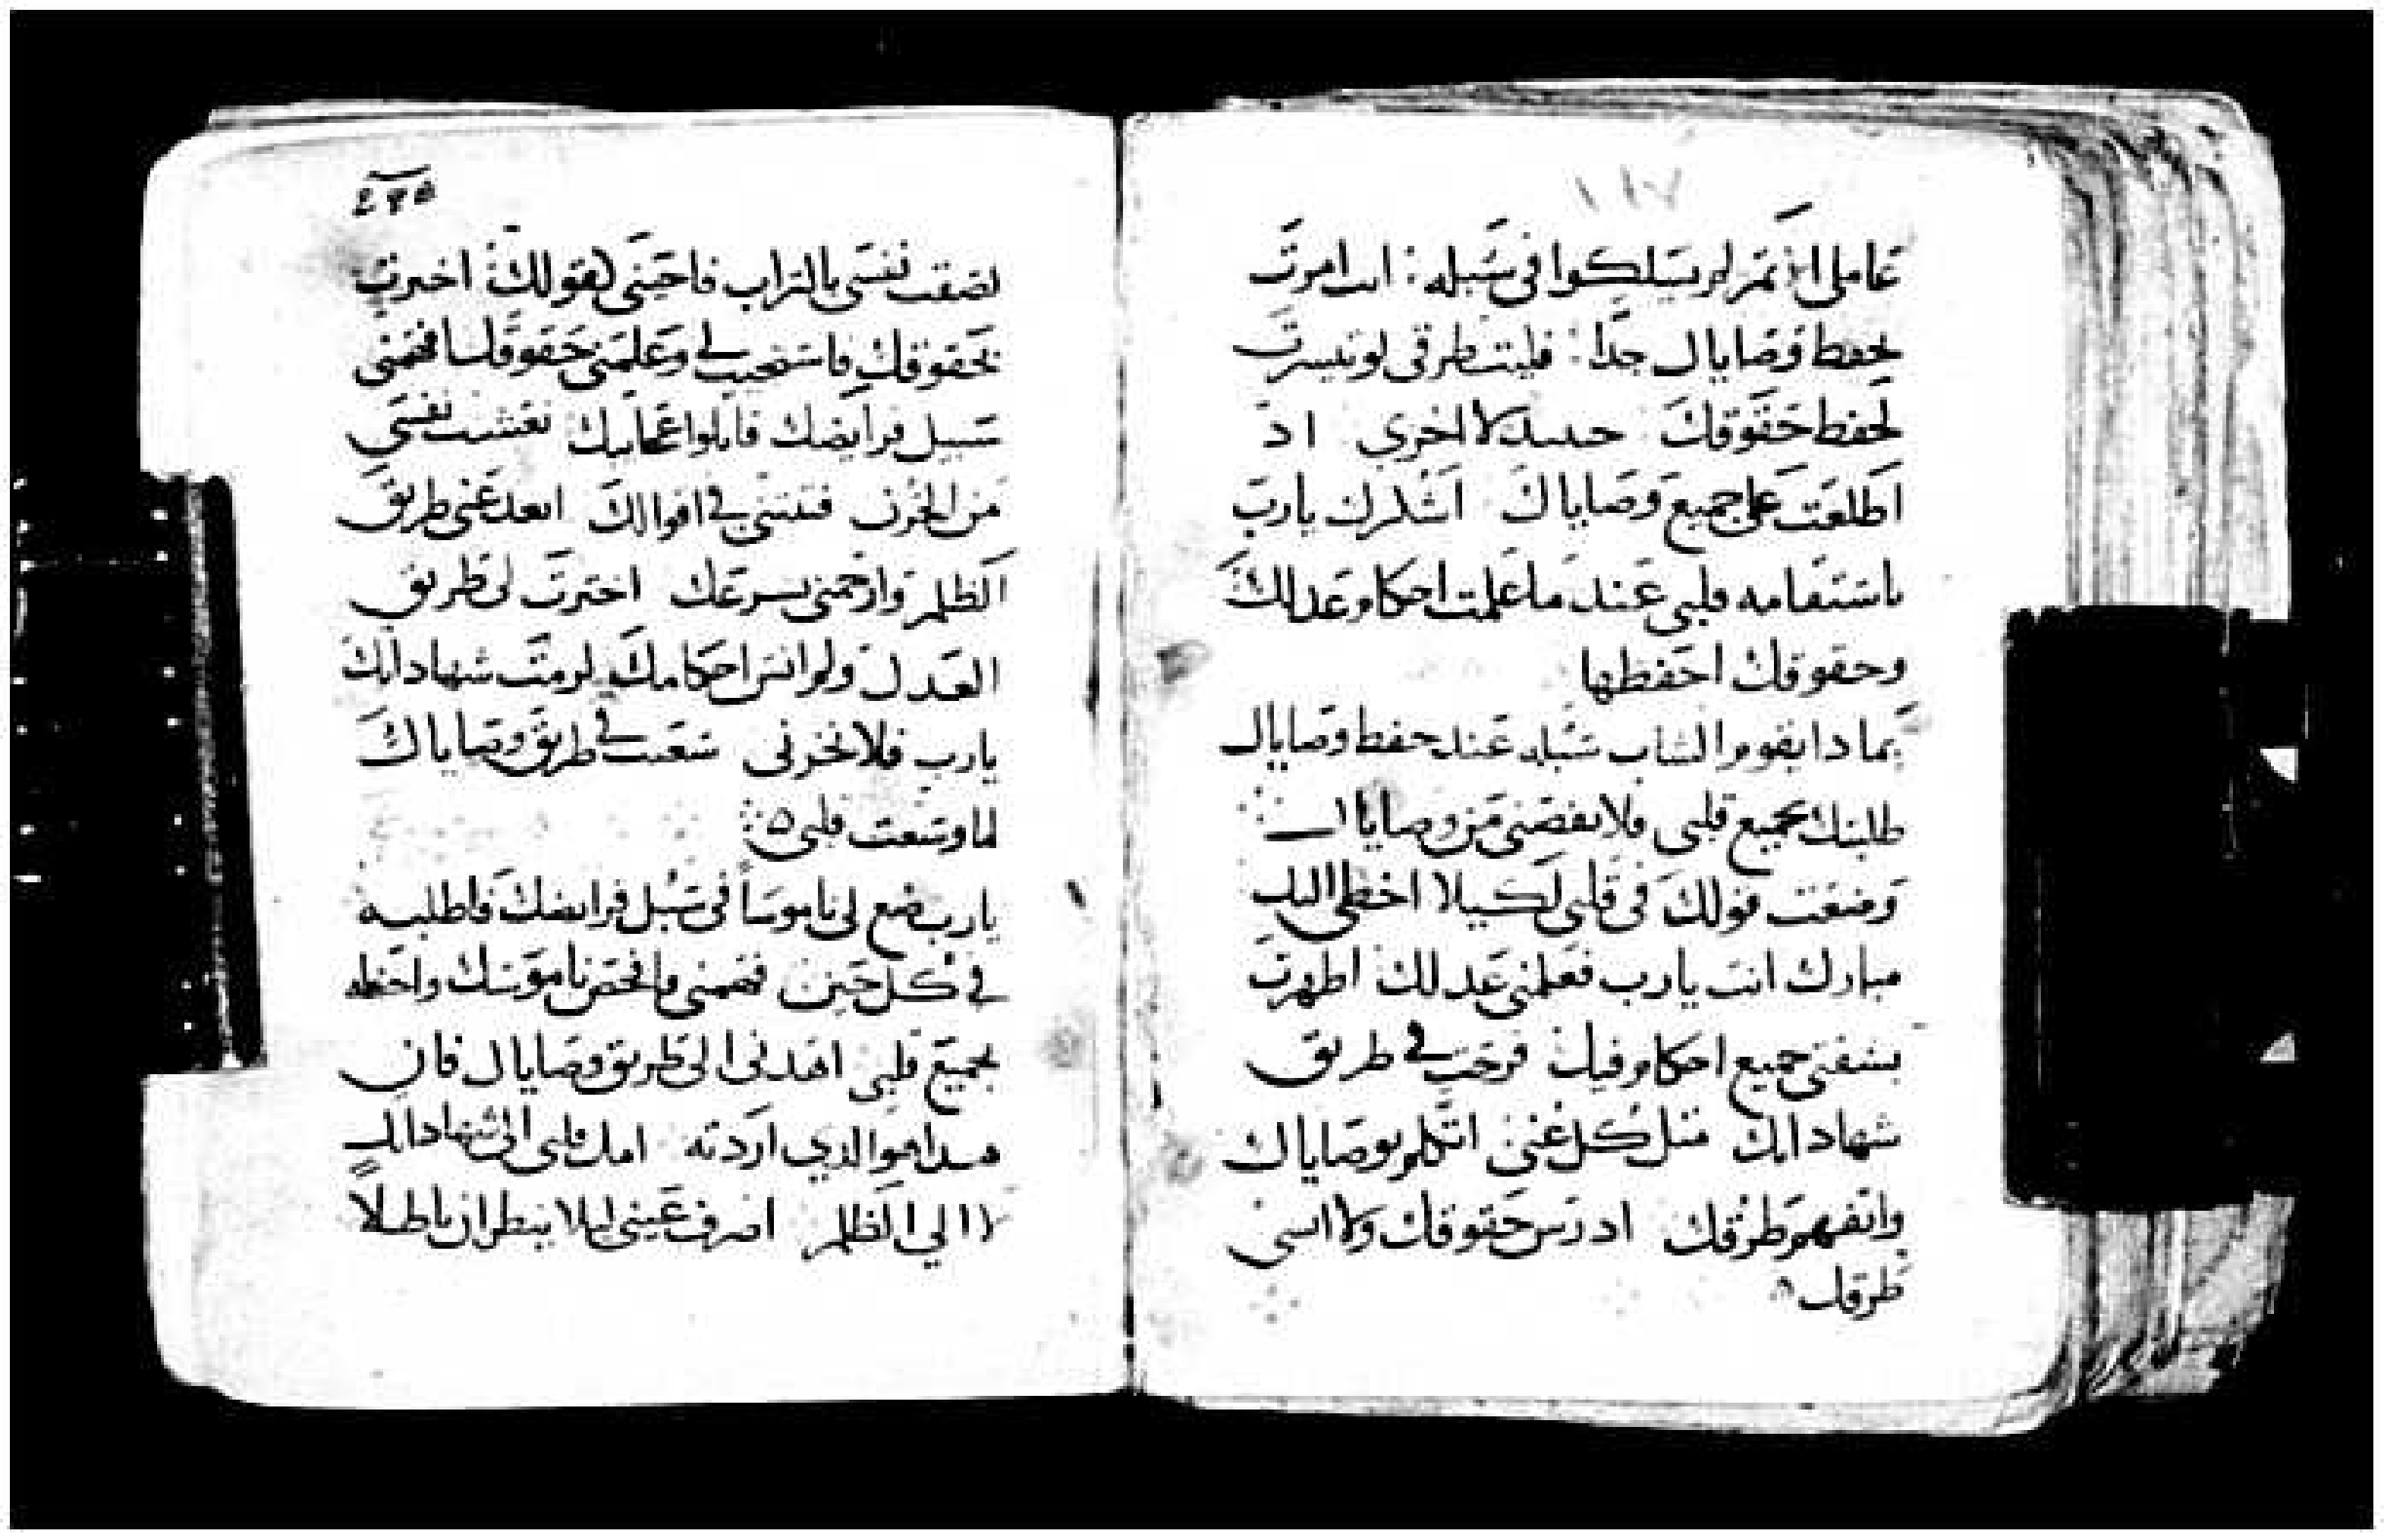 ١١٧
عاملى الاثم لم يسلكوا في سبله : انت امرت
بحفظ وصاياك جدا : فليت طرقي لو تيسرت
لحفظ حقوقك حينيد لا اخزي اد
اطلعت على جميع وصاياك اشكرك يارب
باستقامه قلبي عند ما علمت احكام عدلك
وحقوقك احفظها
بمادا يقوم الشاب سبله عند حفظ وصاياك
طلبتك بجميع قلبي فلا تقصني من وصاياك
وضعت قولك في قلبي لكيلا اخطى اليك
مبارك انت يارب فعلمني عدلك اظهرت
بشفتى جميع احكام فيك فرحت في طريق
شهاداتك مثل كل غني اتكلم بوصاياك
واتفهم طرقك ادرس حقوقك ولا انسى
طرقك
لصقت نفسي بالتراب فاحيني كقولك اخبرت
بحقوقك فاستجيب لي وعلمني حقوقك افهمني
سبيل فرايضك فاتلوا عجايبك نعشت نفسي
من الحزن فثبتني في اقوالك ابعد عني طريق
الظلم وارحمني بسرعك اخترت لى طريق
العدل ولم انس احكامك لزمت شهاداتك
يارب فلا تخزني سعيت في طريق وصاياك
لما وسعت قلبي
يارب ضع لى ناموسا في سبل فرايضك فاطلبه
في كل حين ففهمني فافحص ناموسك واحفظه
بجميع قلبي اهدنى الى طريق وصاياك فان
هدا هو الذي اردته امل قلبي الى شهاداتك
لا الي الظلم اصرف عيني ليلا ينظران باطلا